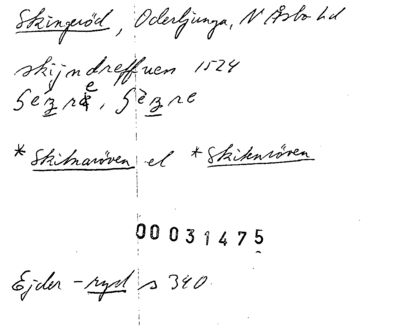 Skingeröd, Oderljunga, N Åsbo hd
skijndreffuen 1524
*Skiknaröven el *Skiknröven
00031475
Ejder-ryd s 340